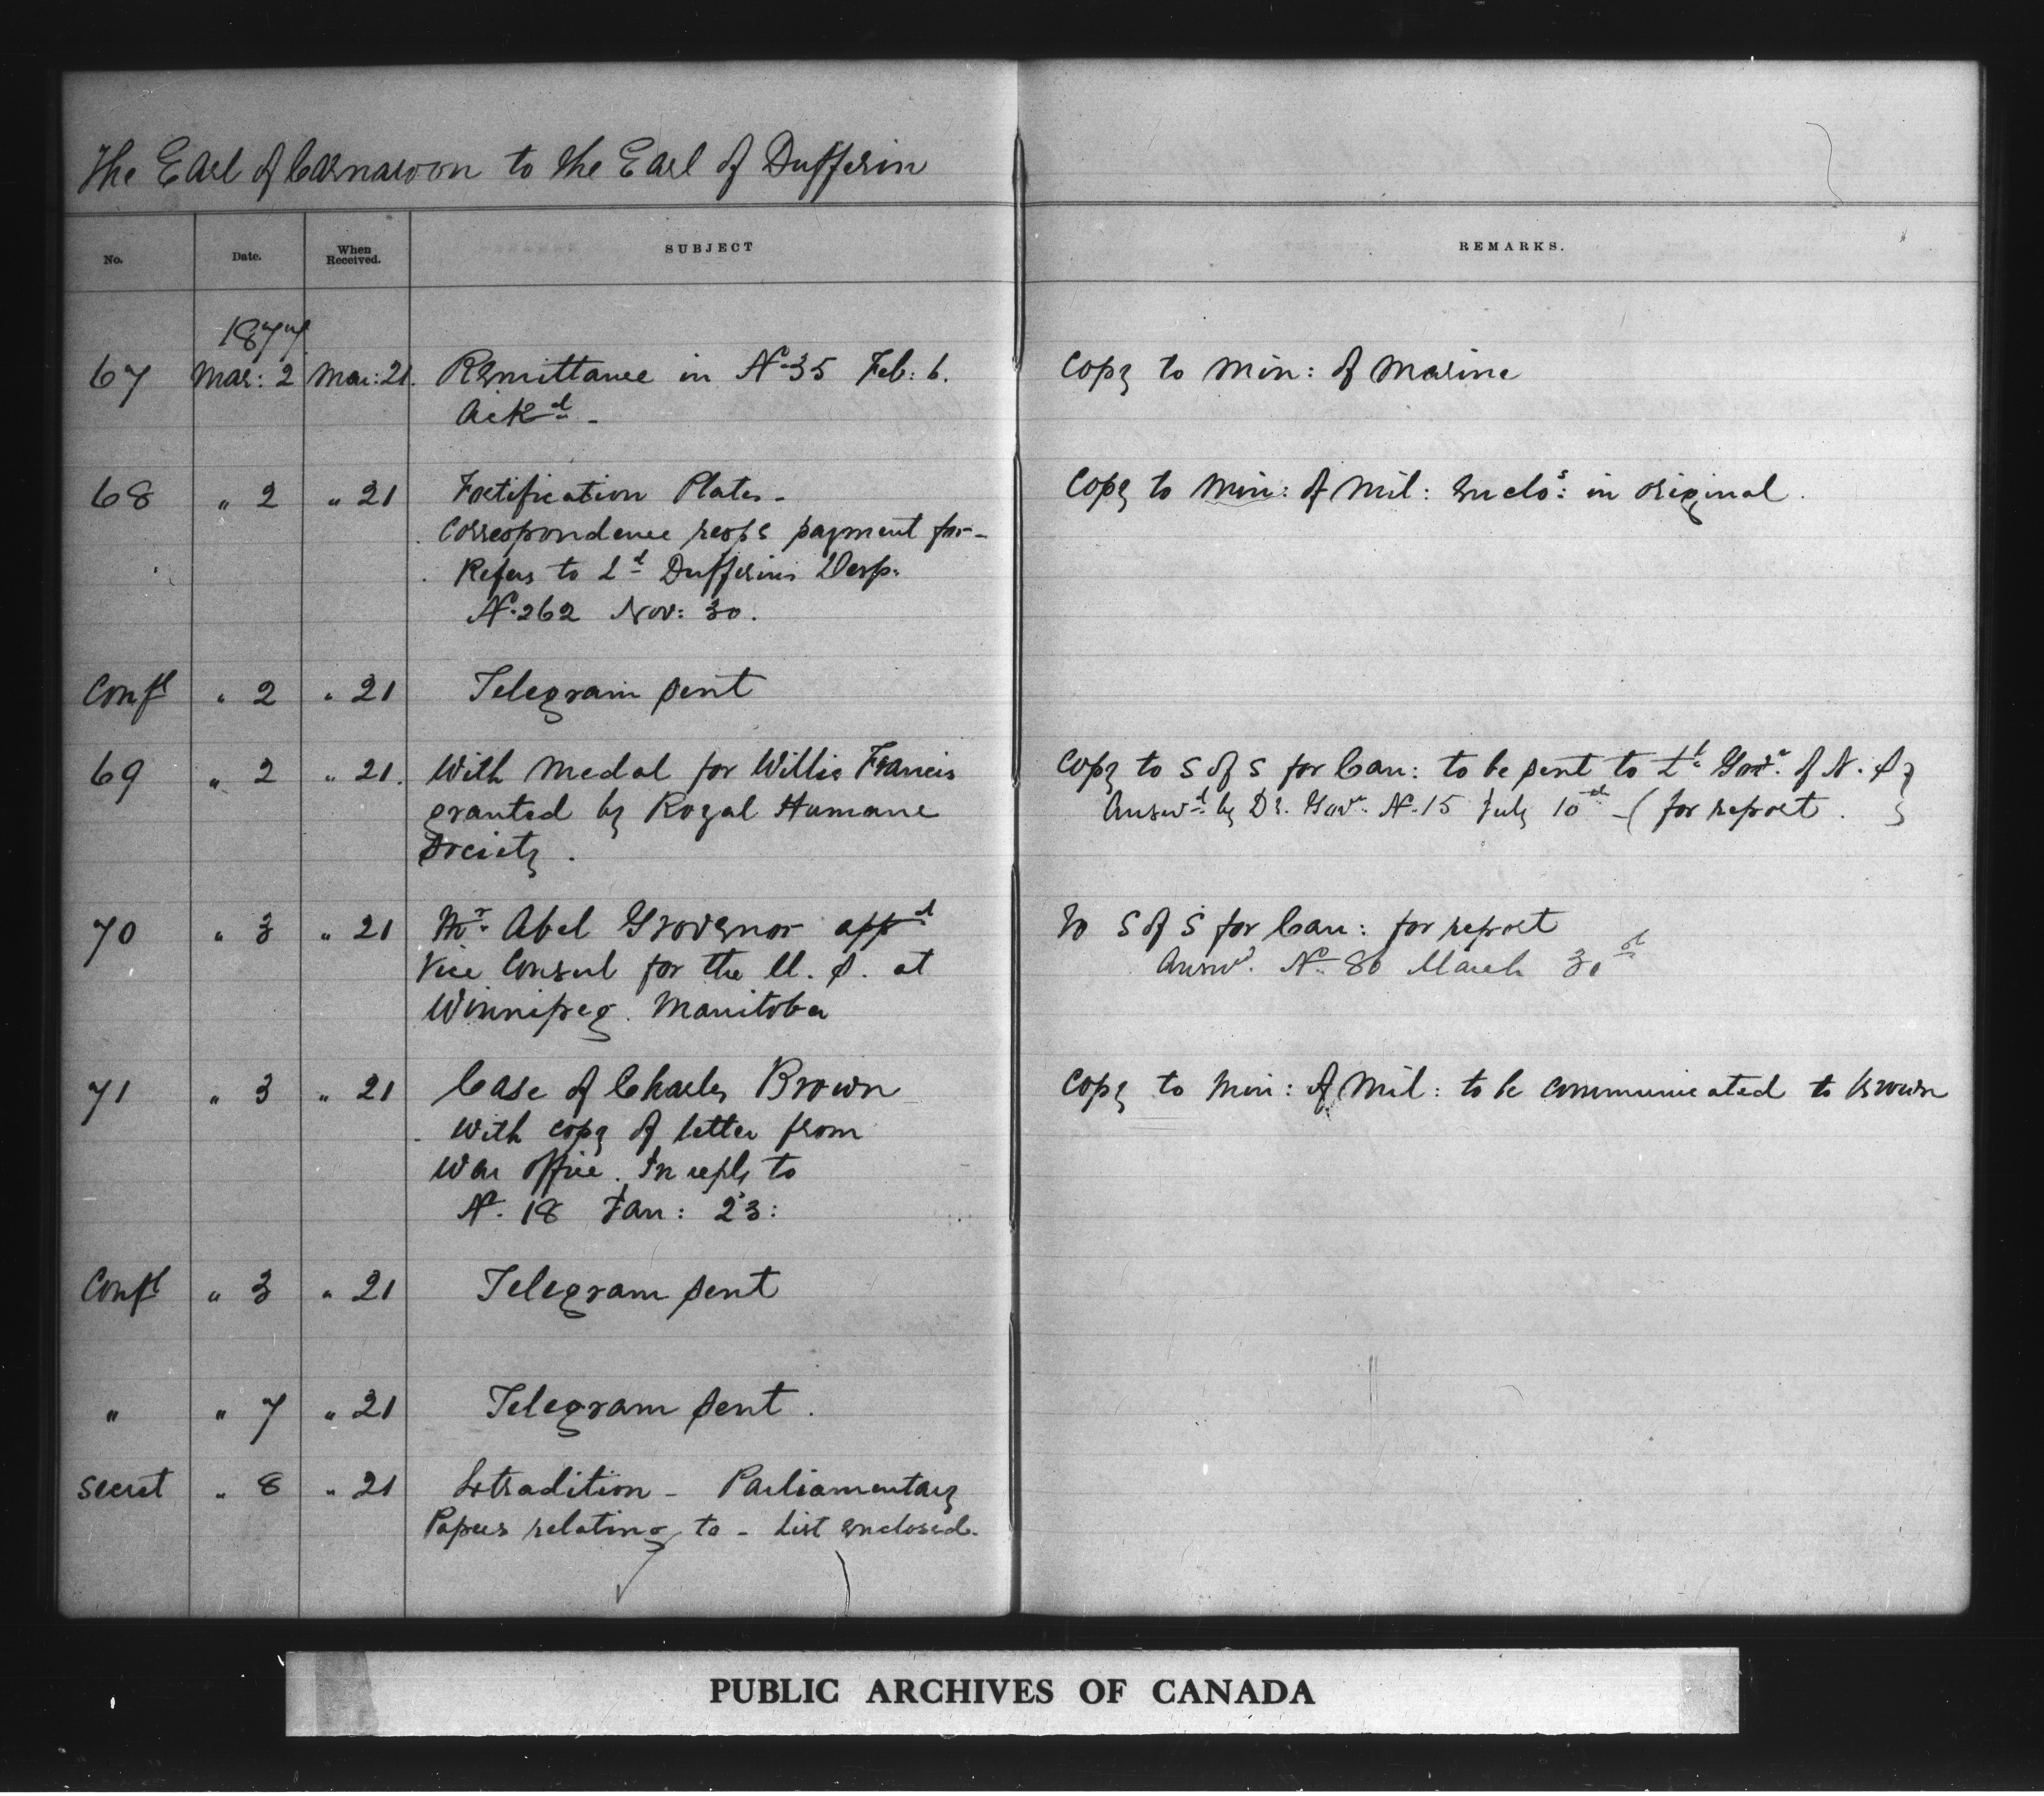 The Earl of Carnarvon to the Earl of Dufferin
No. Date. When Received. SUBJECT REMARKS.
1877
67 Mar: 2 Mar: 21. Remittance in No 35 Feb: 6. Copy to Min: of Marine
Ackd -
68 " 2 " 21 Fortification Plates - Copy to Min: of Mil: Enclos: in original.
Correspondence respg payment for -
Refers to Ld Dufferins Desp.
No. 262 Nov: 30.
Confl " 2 " 21 Telegram sent
69 " 2 " 21. With Medal for Willis Francis Copy to S of S for Can: to be sent to Lt Govr. of N. S
granted by Royal Humane Answd by Govr. No. 15 July 10 - ( for report.
Society.
70 " 3 " 21 Mr. Abel Governor appd To S of S for Can: for report
Vice Consul for the U. S. at Answd. No. 86 March 31st
Winnipeg. Manitoba
71 " 3 " 21 Case of Charles Brown Copy to Min: of Mil: to be communicated to Brown
With copy of letter from
War Office. In reply to
No. 18 Jan: 23:
Confl " 3 " 21 Telegram sent
" " 7 " 21 Telegram sent.
Secret " 8 " 21 Extradition - Parliamentary
Papers relating to - List enclosed.
PUBLIC ARCHIVES OF CANADA